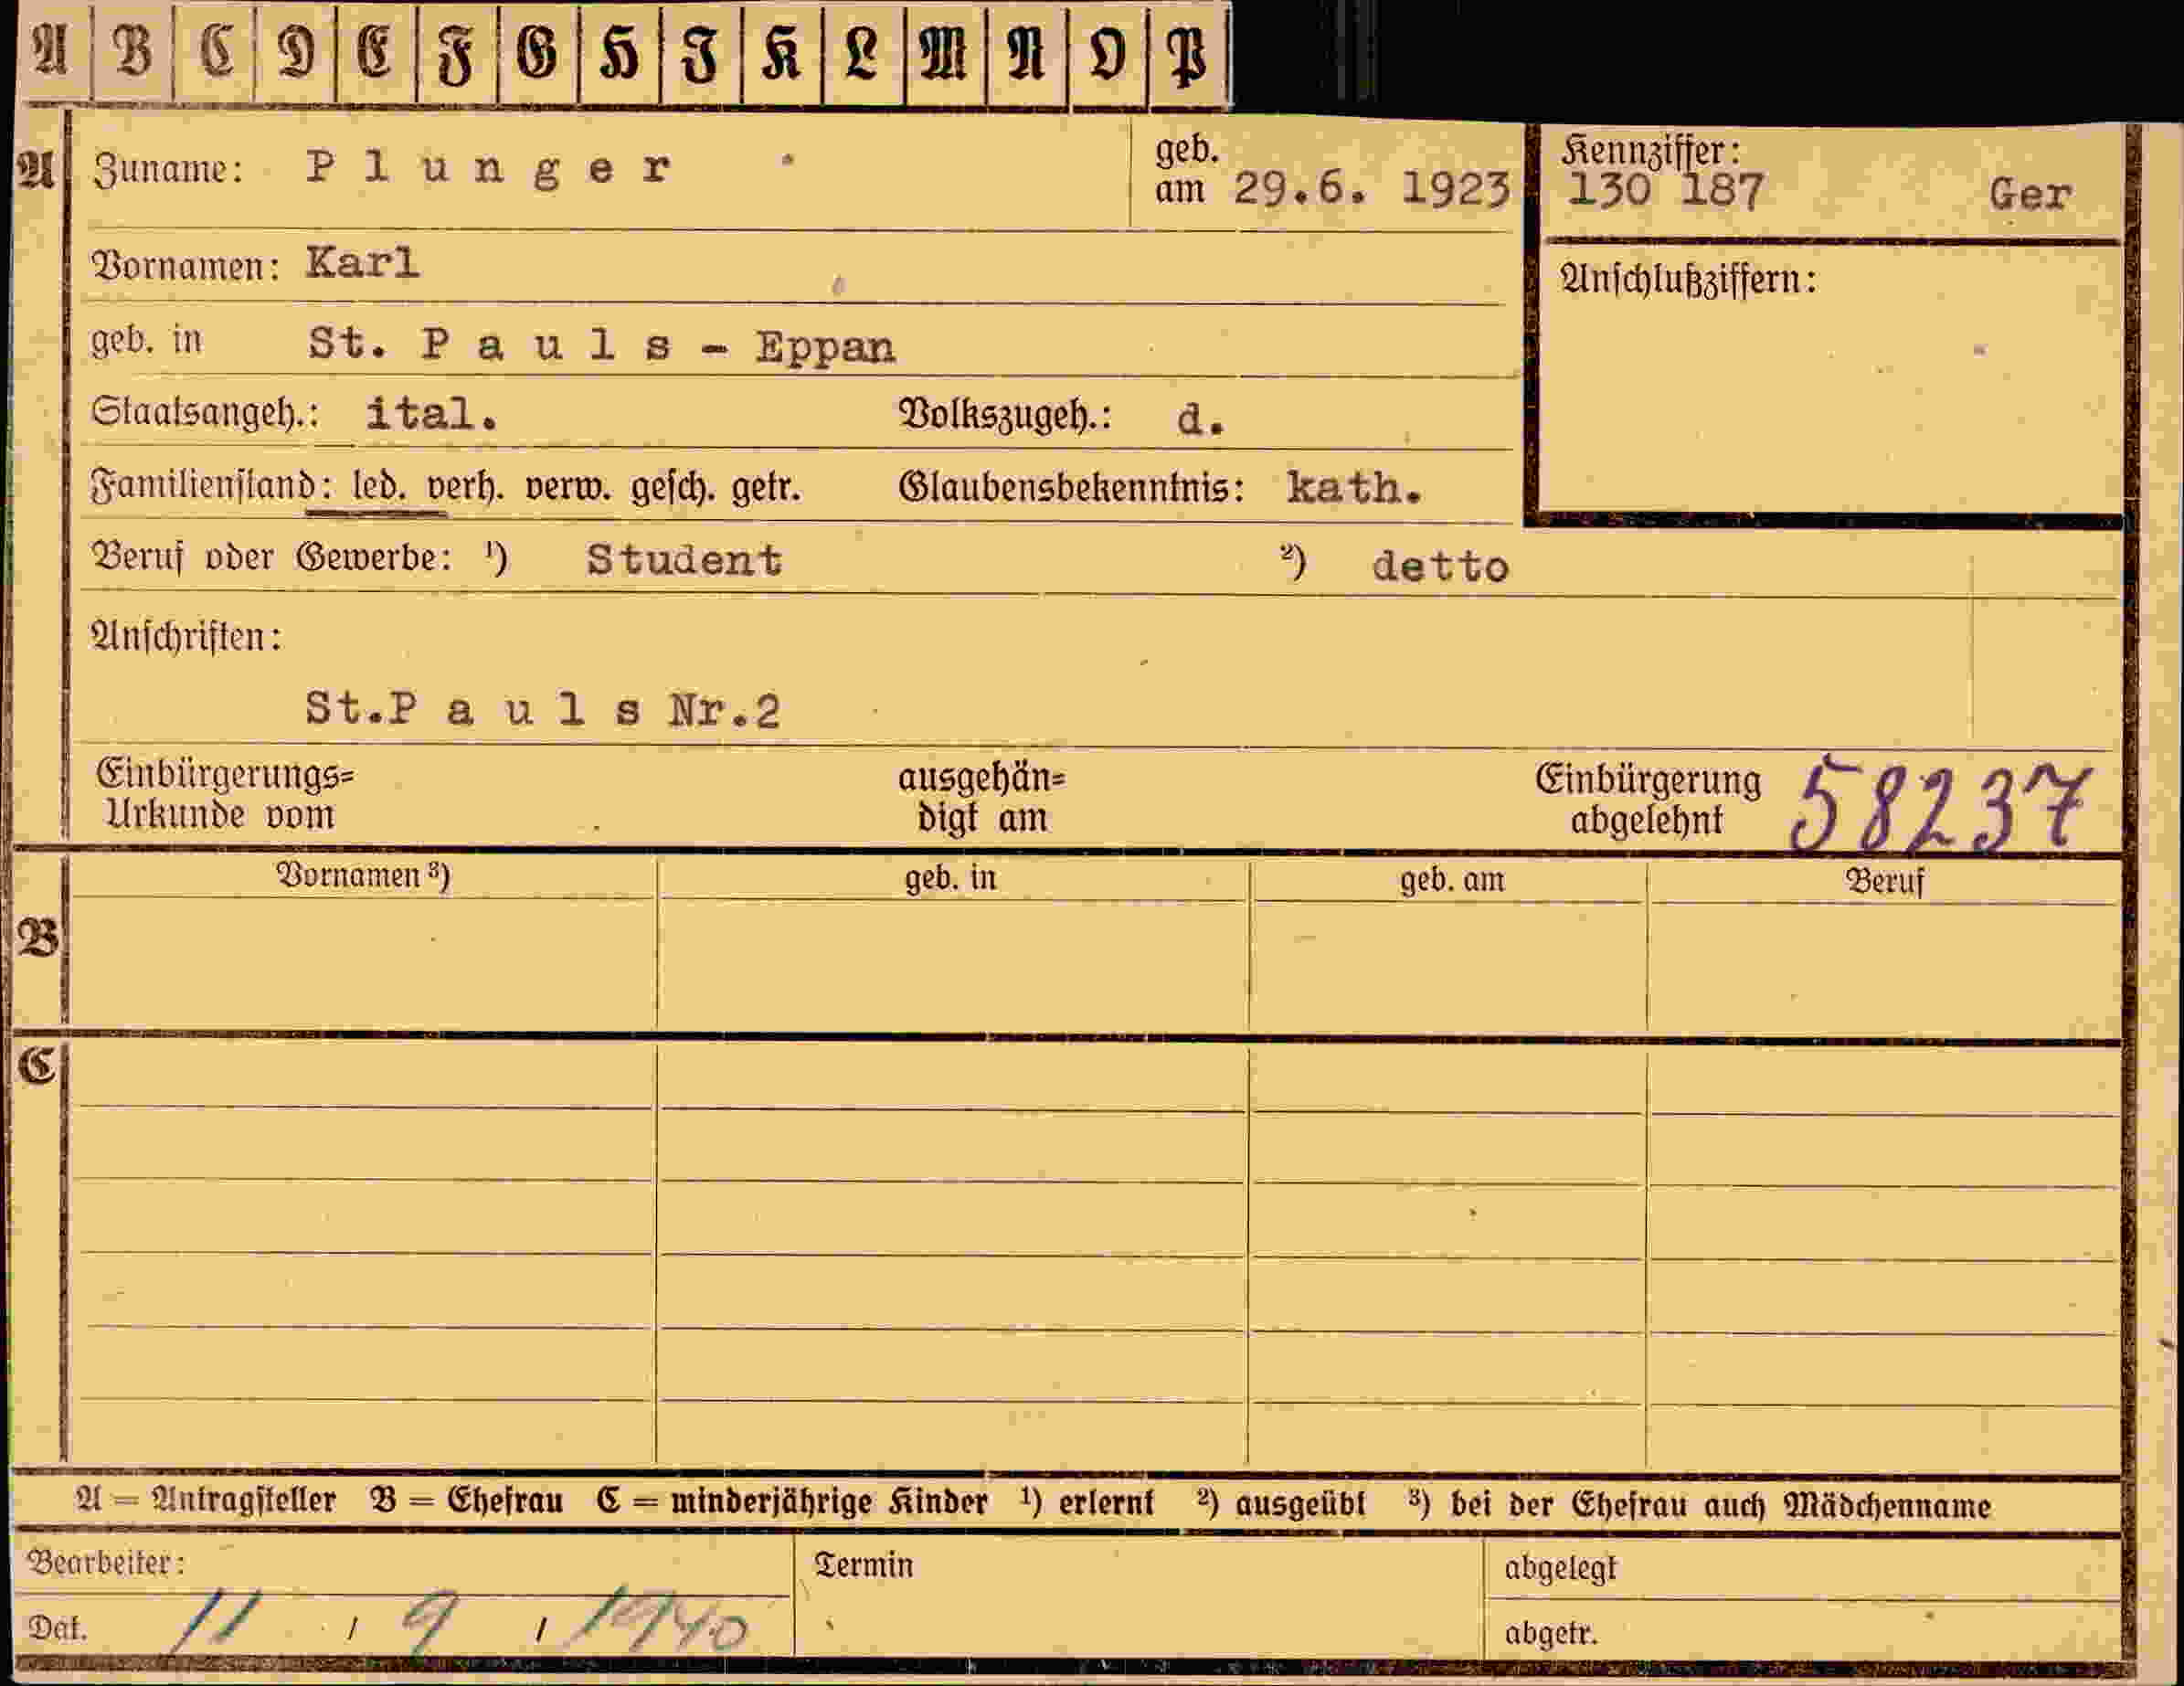 A B C D E F G H I K L M N O P
A Zuname: Plunger geb. am 29.6. 1923 Kennziffer: 130 187 Ger
Vornamen: Karl Anschlußziffern:
geb. in St. Pauls - Eppan
Staatsangeh.: ital. Volkszugeh.: d.
Familienstand: led. verh. verw. gesch. getr. Glaubensbekenntnis: kath.
Beruf oder Gewerbe: ¹) Student ²) detto
Anschriften:
St.Pauls Nr.2
Einbürgerungs= ausgehän= Einbürgerung 58237
Urkunde vom digt am abgelehnt
Vornamen ³) geb. in geb. am Beruf
B
C
A = Antragsteller B = Ehefrau C = minderjährige Kinder ¹) erlernt ²) ausgeübt ³) bei der Ehefrau auch Mädchenname
Bearbeiter: Termin abgelegt
Dat. 11 / 9 / 1940 abgetr.